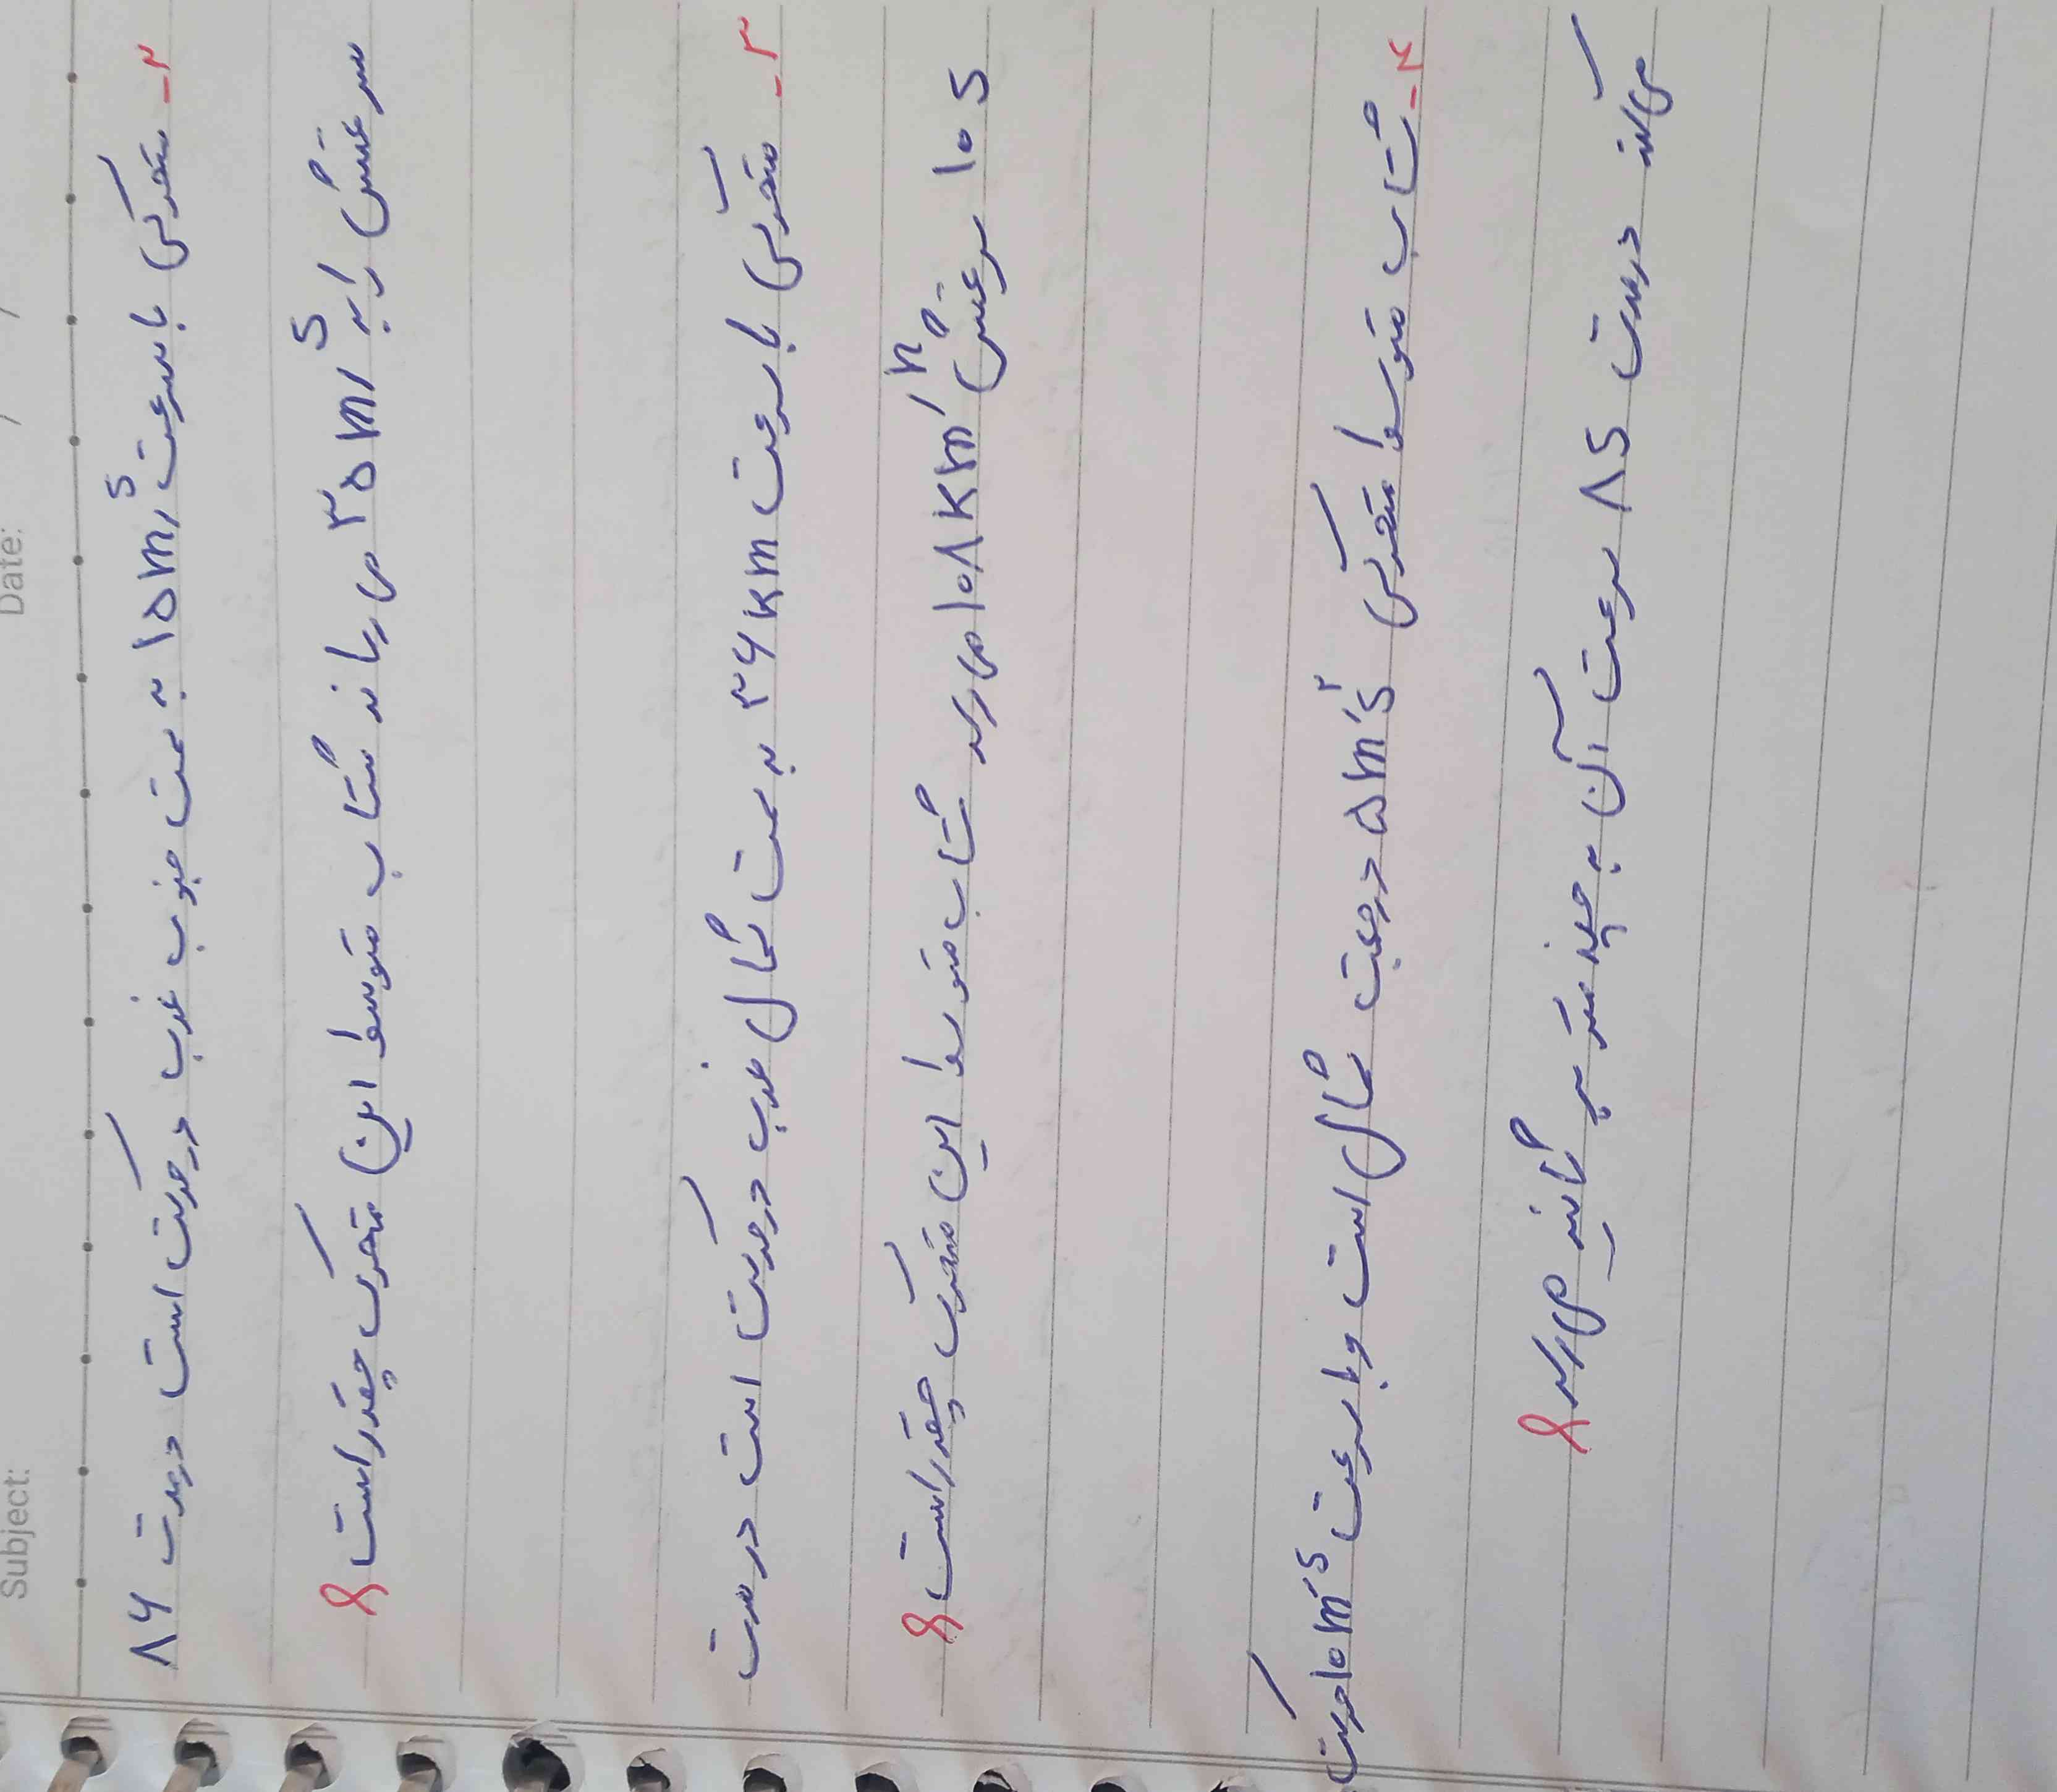 Subject:
Date: / /
۲- متحرکی با سرعت ۱۵m/s به سمت جنوب غرب در حرکت است درمدت ۸۶
سرعتش را به ۳۵m/s می رساند شتاب متوسط این متحرک چقدر است؟
۳- متحرکی با سرعت ۳۶km به سمت شمال غرب در حرکت است در مدت
۱۰s سرعتش ۱۰۸km/h می رسد شتاب متوسط این متحرک چقدر است؟
۴- شتاب متوسط متحرکی ۵m/s۲ درجهت شمال است و با سرعت ۱۰m/s حرکت
می کند درمدت ۸s سرعت آن به چند متر بر ثانیه می رسد؟